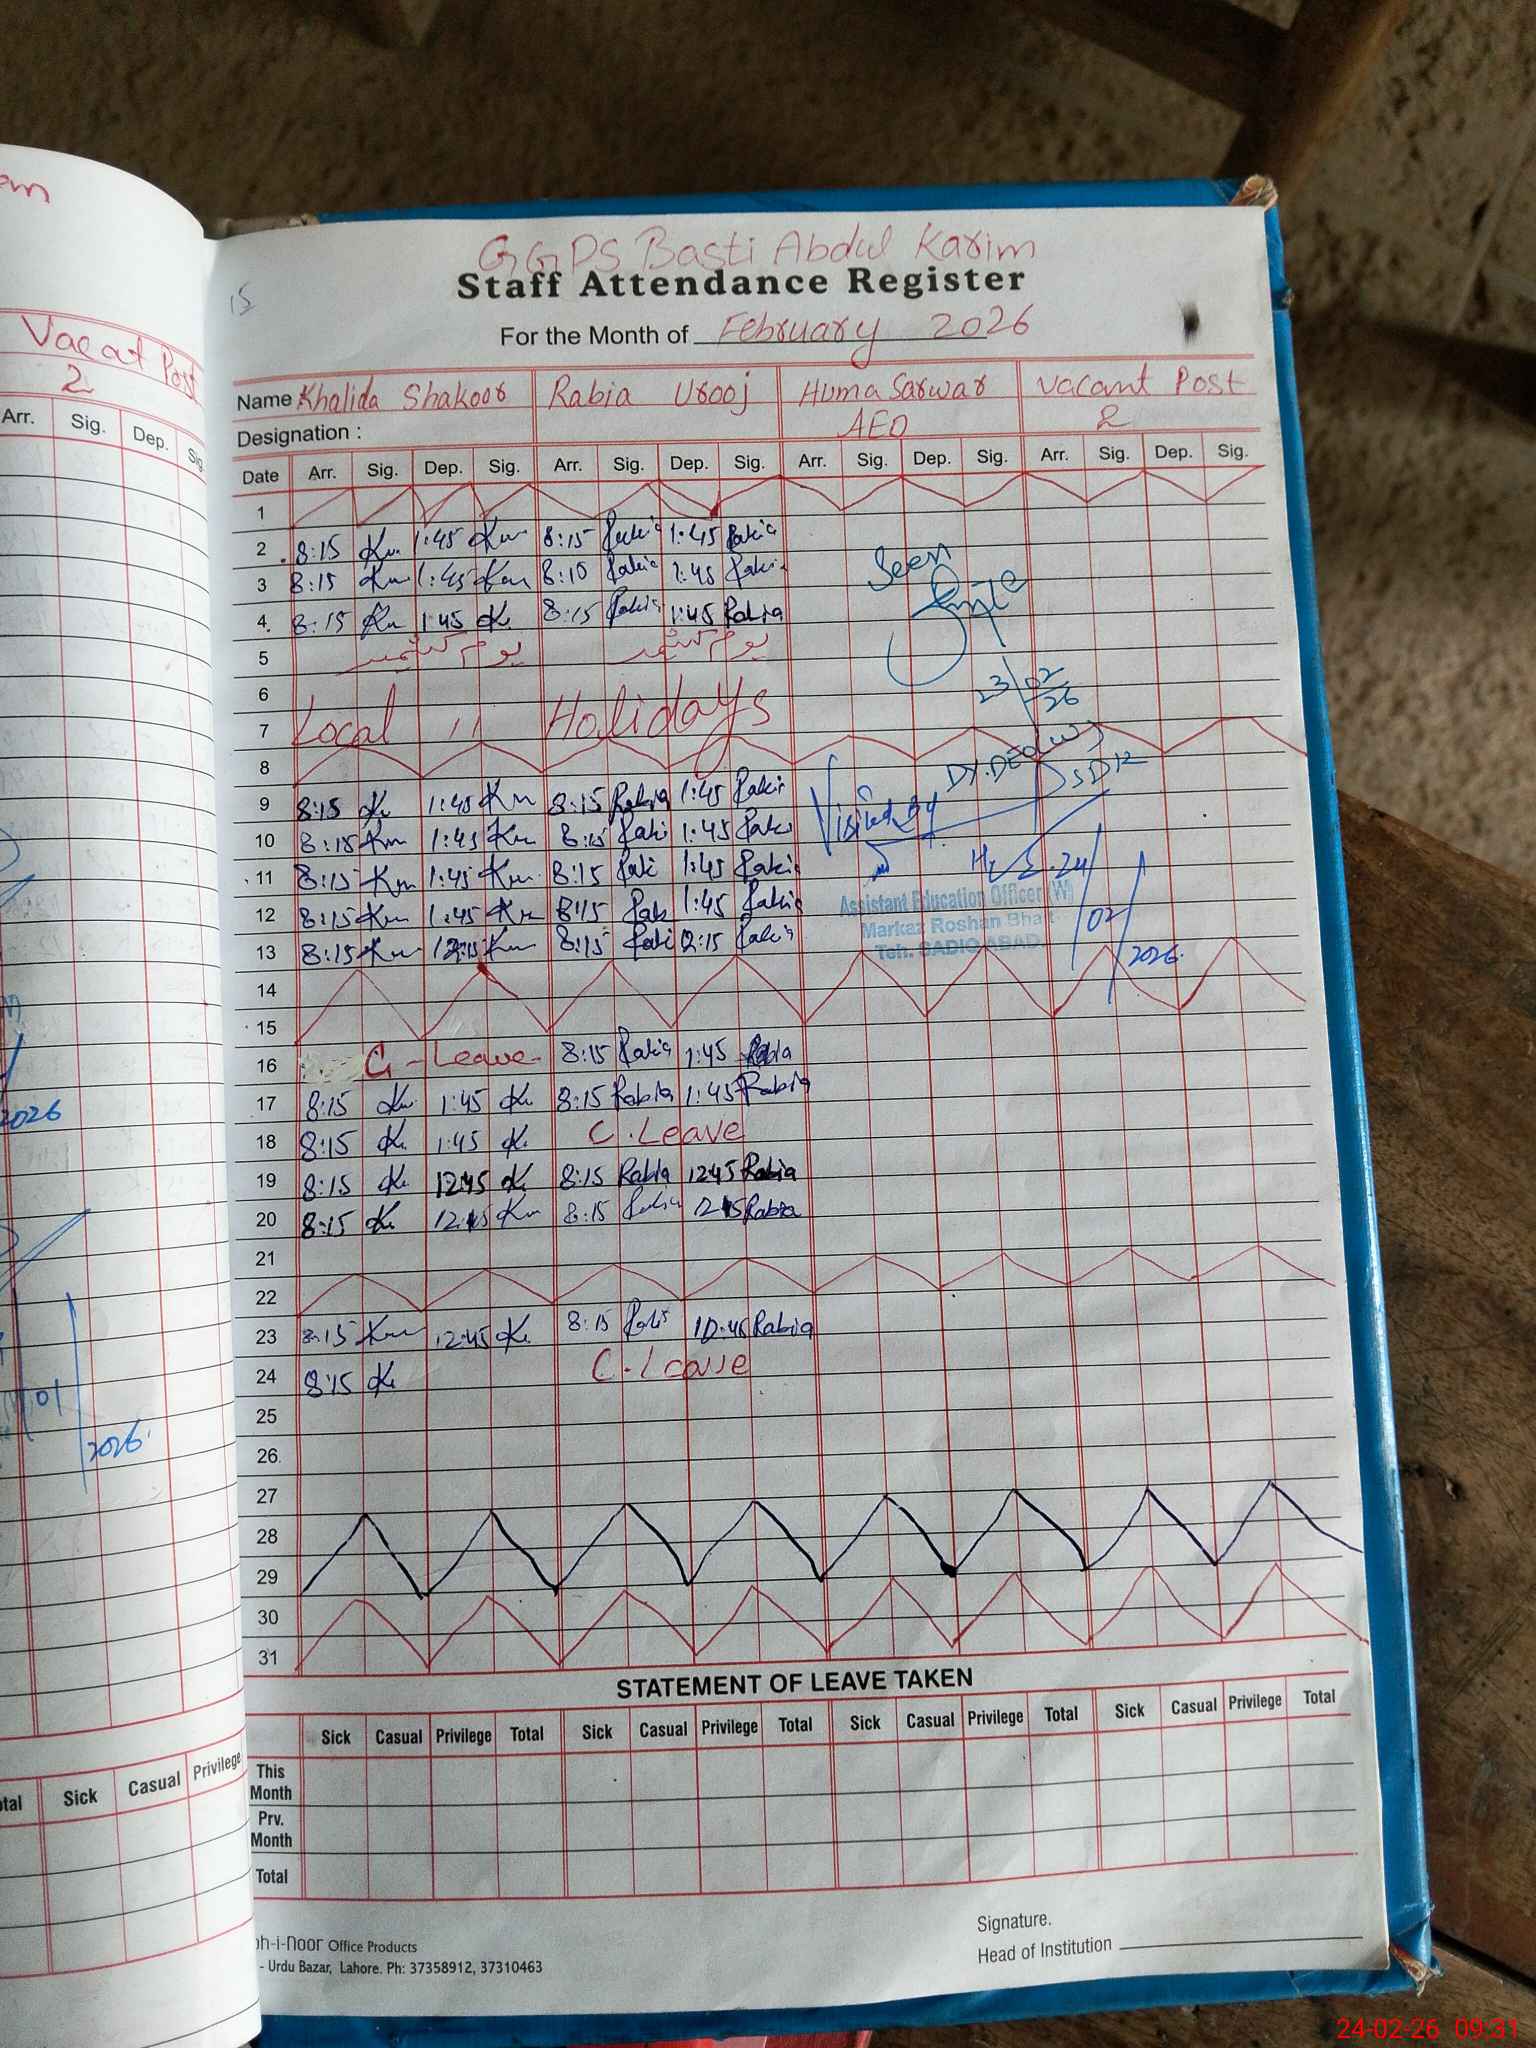 GGPS Basti Abdul Karim
Staff Attendance Register
15
For the Month of February 2026
Name Khalida Shakoor Rabia Urooj Huma Sarwar Vacant Post
Designation : AEO 2
Date Arr. Sig. Dep. Sig. Arr. Sig. Dep. Sig. Arr. Sig. Dep. Sig. Arr. Sig. Dep. Sig.
1
2 8:15 Km 1:45 Km 8:15 Rabia 1:45 Rabia
3 8:15 Km 1:45 Km 8:10 Rabia 1:45 Rabia
4 8:15 Km 1:45 K 8:15 Rabia 1:45 Rabia
5 یوم کشمیر یوم کشمیر
6
7 Local " Holidays
8
9 8:15 K 1:45 Km 8:15 Rabia 1:45 Rabia
10 8:15 Km 1:45 Km 8:15 Rabi 1:45 Rabi
11 8:15 Km 1:45 Km 8:15 Rabi 1:45 Rabia
12 8:15 Km 1:45 Km 8:15 Rab 1:45 Rabia
13 8:15 Km 12:15 Km 8:15 Rabi 12:15 Rabia
14
15
16 C-Leave 8:15 Rabia 1:45 Rabia
17 8:15 K 1:45 K 8:15 Rabia 1:45 Rabia
18 8:15 K 1:45 K C.Leave
19 8:15 K 12:45 K 8:15 Rabia 12:45 Rabia
20 8:15 K 8:15 Rabia Rabia
21
22
23 8:15 Km 12:45 K 8:15 Rabi Rabia
24 8:15 K C-Leave
25
26
27
28
29
30
31
Seen
23/02/26
DY.DEO(W)
SDK
Visited By
24/02/2026
Assistant Education Officer (W)
Markaz Roshan Bhait
Teh. SADIQ ABAD
STATEMENT OF LEAVE TAKEN
Sick Casual Privilege Total Sick Casual Privilege Total Sick Casual Privilege Total Sick Casual Privilege Total
This Month
Prv. Month
Total
Signature.
Head of Institution
oh-i-noor Office Products
- Urdu Bazar, Lahore. Ph: 37358912, 37310463
Vacat Post
2
Arr. Sig. Dep. Sig
2026
01
2026
otal Sick Casual Privilege
24-02-26 09:31